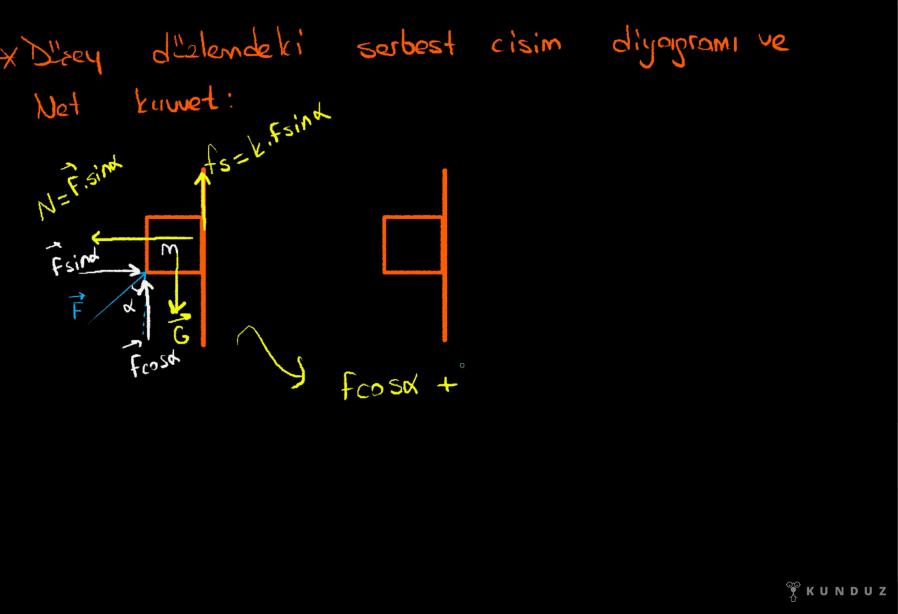 * Düşey düzlemdeki serbest cisim diyagramı ve
Net kuvvet:
fs=k.Fsinα
N=F.sinα
m
Fsinα
F
α
G
Fcosα
Fcosα +
KUNDUZ